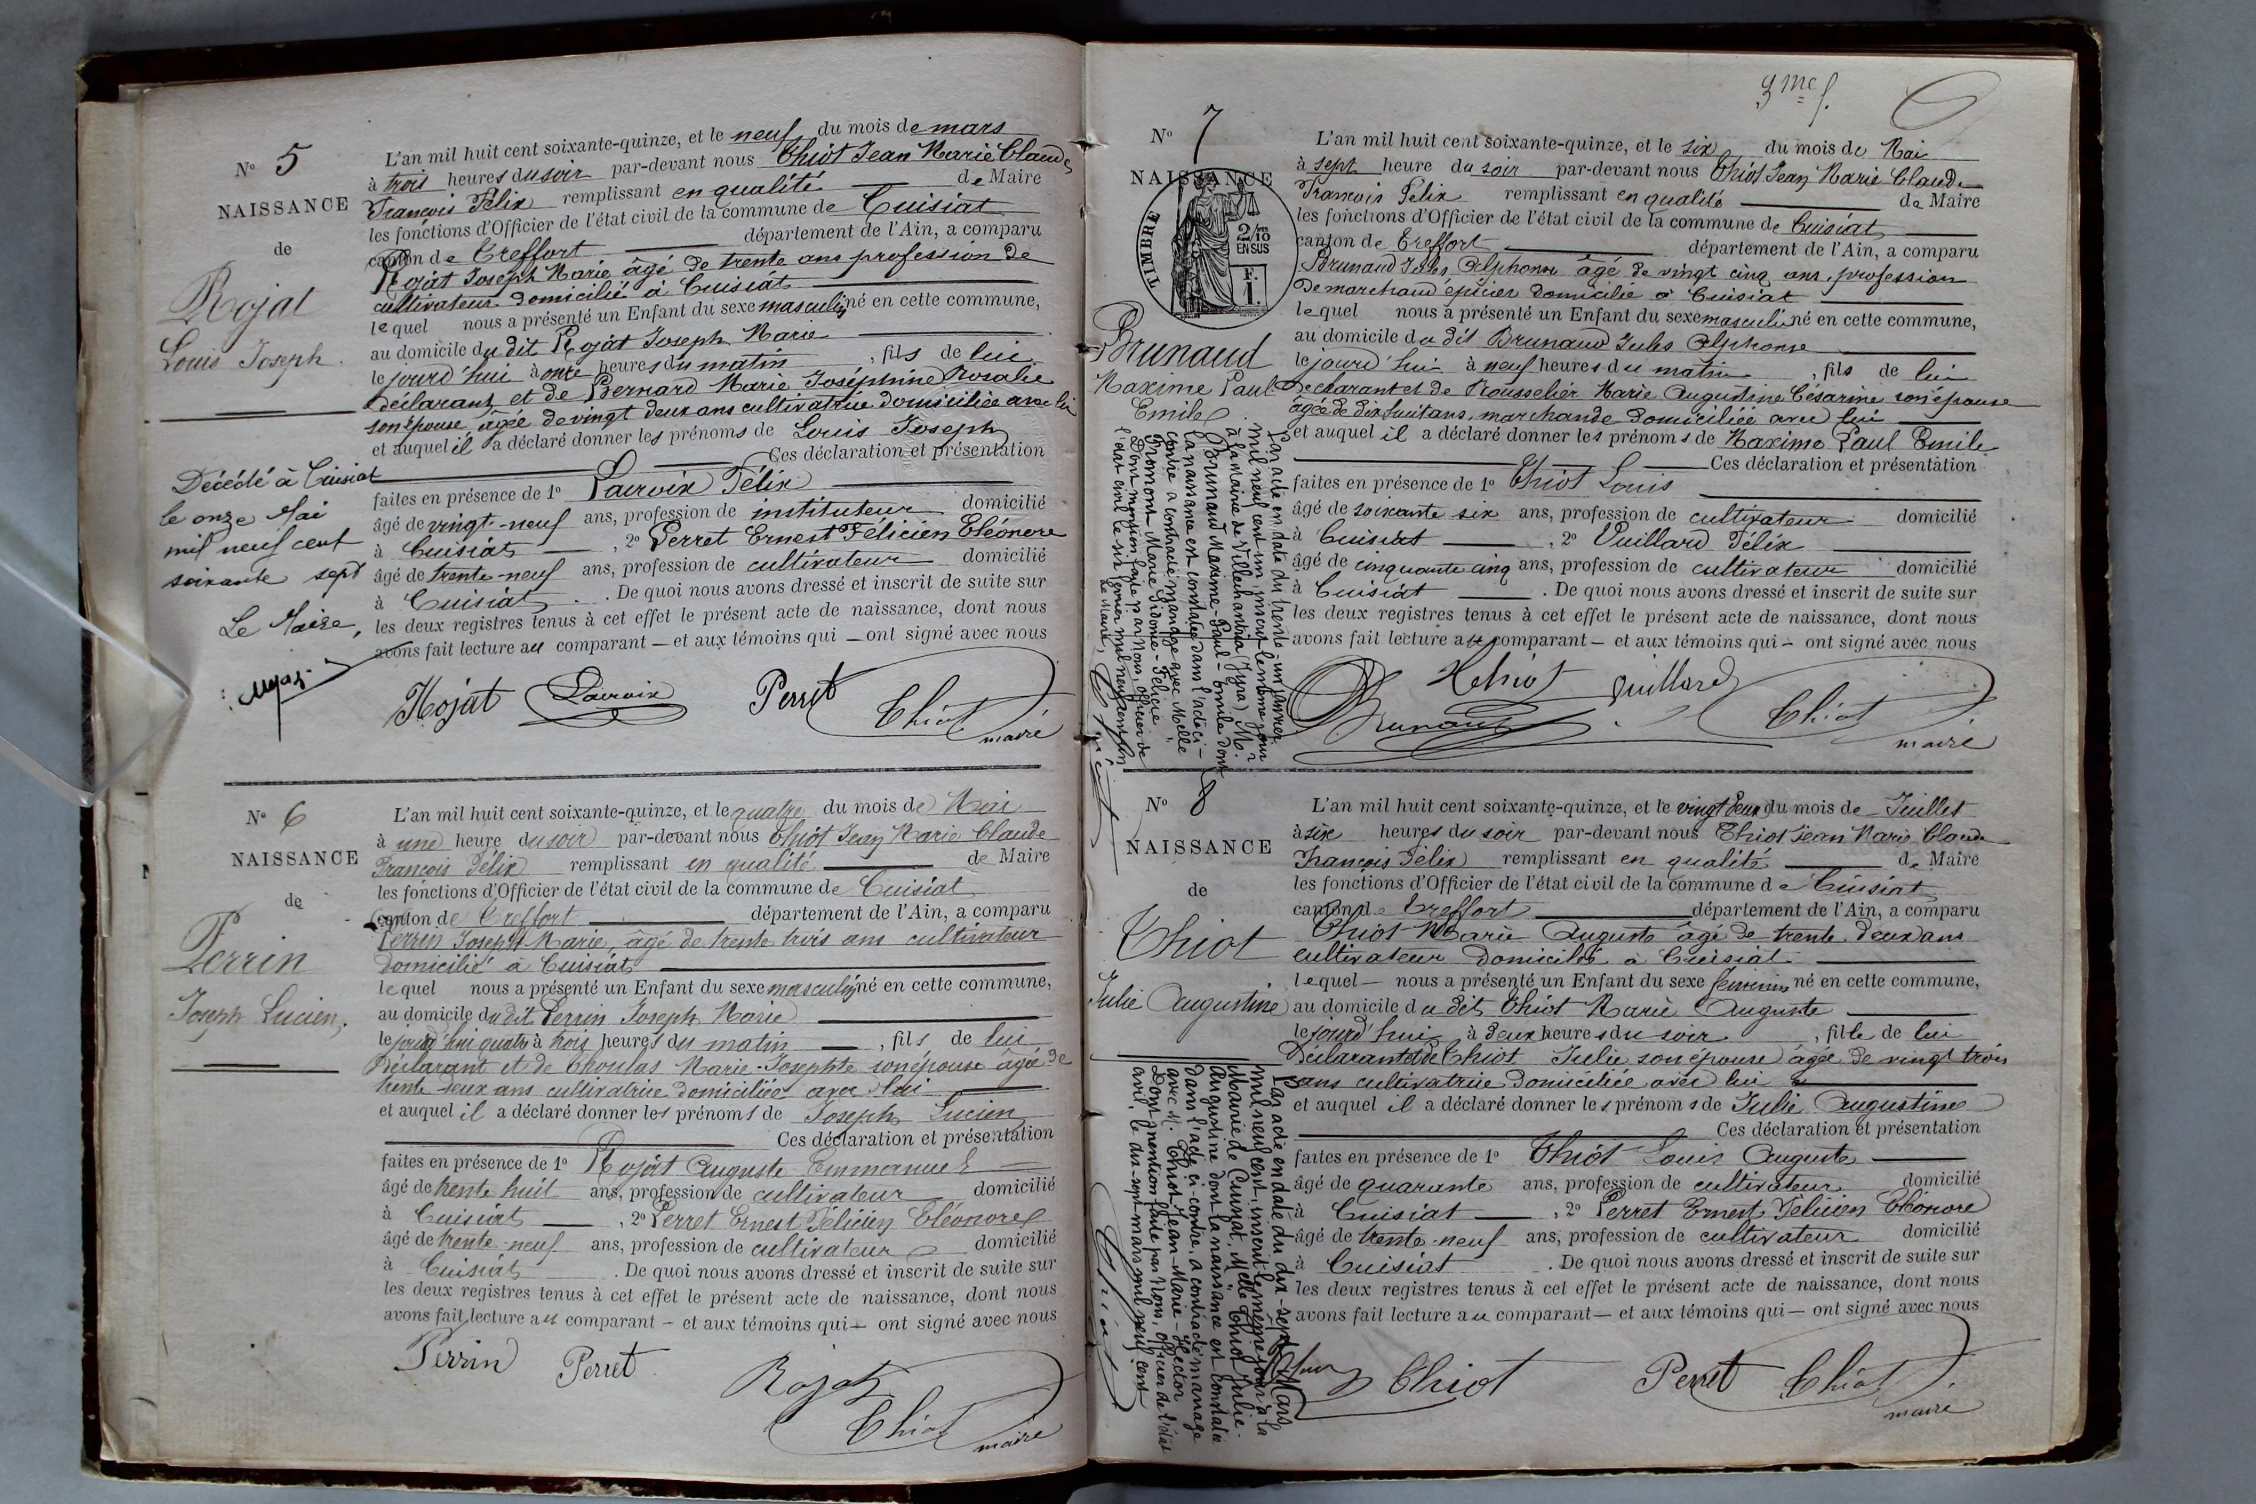 N° 5
NAISSANCE
de
Rojat
Louis Joseph.
L'an mil huit cent soixante-quinze, et le neuf du mois de mars
à trois heures du soir par-devant nous Chiot Jean Marie Claude
François Félix remplissant en qualité de Maire
les fonctions d'Officier de l'état civil de la commune de Cuisiat
canton de Treffort département de l'Ain, a comparu
Rojat Joseph Marie âgé de trente ans profession de
cultivateur domicilié à Cuisiat
lequel nous a présenté un Enfant du sexe masculin né en cette commune,
au domicile du dit Rojat Joseph Marie
le jourd'hui à onze heures du matin, fils de lui
déclarant et de Bernard Marie Joséphine Rosalie
son épouse âgée de vingt deux ans cultivatrice domiciliée avec lui
et auquel il a déclaré donner les prénoms de Louis Joseph
Ces déclaration et présentation
faites en présence de 1° Lacroix Félix
âgé de vingt-neuf ans, profession de instituteur domicilié
à Cuisiat, 2° Perret Ernest Félicien Eléonore
âgé de trente-neuf ans, profession de cultivateur domicilié
à Cuisiat. De quoi nous avons dressé et inscrit de suite sur
les deux registres tenus à cet effet le présent acte de naissance, dont nous
avons fait lecture au comparant — et aux témoins qui — ont signé avec nous
Décédé à Cuisiat
le onze Mai
mil neuf cent
soixante sept
Le Maire,
Rojat Lacroix Perret Chiot
maire
N° 6
NAISSANCE
de
Perrin
Joseph Lucien.
L'an mil huit cent soixante-quinze, et le quatre du mois de Mai
à une heure du soir par-devant nous Chiot Jean Marie Claude
François Félix remplissant en qualité de Maire
les fonctions d'Officier de l'état civil de la commune de Cuisiat
canton de Treffort département de l'Ain, a comparu
Perrin Joseph Marie, âgé de trente trois ans cultivateur
domicilié à Cuisiat
lequel nous a présenté un Enfant du sexe masculin né en cette commune,
au domicile du dit Perrin Joseph Marie
le jourd'hui quatre à trois heures du matin, fils de lui
Déclarant et de Choulas Marie-Josephte son épouse âgée de
trente deux ans cultivatrice domiciliée avec lui
et auquel il a déclaré donner les prénoms de Joseph Lucien
Ces déclaration et présentation
faites en présence de 1° Rojat Auguste Emmanuel
âgé de trente huit ans, profession de cultivateur domicilié
à Cuisiat, 2° Perret Ernest Félicien Eléonore
âgé de trente-neuf ans, profession de cultivateur domicilié
à Cuisiat. De quoi nous avons dressé et inscrit de suite sur
les deux registres tenus à cet effet le présent acte de naissance, dont nous
avons fait lecture au comparant — et aux témoins qui — ont signé avec nous
Perrin Perret Rojat
Chiot
maire
3me f.
N° 7
NAISSANCE
TIMBRE
2/10
EN SUS
F.
1.
Brunaud
Maxime Paul
Emile
L'an mil huit cent soixante-quinze, et le six du mois de Mai
à sept heure du soir par-devant nous Chiot Jean Marie Claude
François Félix remplissant en qualité de Maire
les fonctions d'Officier de l'état civil de la commune de Cuisiat
canton de Treffort département de l'Ain, a comparu
Brunaud Jules Alphonse âgé de vingt cinq ans, profession
de marchand épicier domicilié à Cuisiat
lequel nous a présenté un Enfant du sexe masculin né en cette commune,
au domicile du dit Brunaud Jules Alphonse
le jourd'hui à neuf heures du matin, fils de lui
déclarant et de Rousselier Marie Augustine Césarine son épouse
âgée de dix huit ans, marchande domiciliée avec lui
et auquel il a déclaré donner les prénoms de Maxime Paul Emile
Ces déclaration et présentation
faites en présence de 1° Chiot Louis
âgé de soixante six ans, profession de cultivateur domicilié
à Cuisiat, 2° Vuillard Félix
âgé de cinquante cinq ans, profession de cultivateur domicilié
à Cuisiat. De quoi nous avons dressé et inscrit de suite sur
les deux registres tenus à cet effet le présent acte de naissance, dont nous
avons fait lecture au comparant — et aux témoins qui — ont signé avec nous
Par acte en date du trente un janvier
mil neuf cent un, inscrit le même jour
à la Mairie de Villechantria (Jura) M.
Brunaud Maxime-Paul-Emile dont
la naissance est constatée dans l'acte ci-
contre a contracté mariage avec Melle
Fromont Marie Sidonie-Félicie.
Dont mention faite par Nous, officier de
l'état civil le six février mil neuf cent un
Le Maire,
Chiot
Chiot Vuillard
Brunaud Chiot
maire
N° 8
NAISSANCE
de
Chiot
Julie Augustine
L'an mil huit cent soixante-quinze, et le vingt deux du mois de Juillet
à six heures du soir par-devant nous Chiot Jean Marie Claude
François Félix remplissant en qualité de Maire
les fonctions d'Officier de l'état civil de la commune de Cuisiat
canton de Treffort département de l'Ain, a comparu
Chiot Marie Auguste âgé de trente deux ans
cultivateur domicilié à Cuisiat
lequel — nous a présenté un Enfant du sexe féminin né en cette commune,
au domicile du dit Chiot Marie Auguste
le jourd'hui à deux heures du soir, fille de lui
Déclarant et de Chiot Julie son épouse âgée de vingt trois
ans cultivatrice domiciliée avec lui
et auquel il a déclaré donner les prénoms de Julie Augustine
Ces déclaration et présentation
faites en présence de 1° Chiot Louis Auguste
âgé de quarante ans, profession de cultivateur domicilié
à Cuisiat, 2° Perret Ernest Félicien Eléonore
âgé de trente-neuf ans, profession de cultivateur domicilié
à Cuisiat. De quoi nous avons dressé et inscrit de suite sur
les deux registres tenus à cet effet le présent acte de naissance, dont nous
avons fait lecture au comparant — et aux témoins qui — ont signé avec nous
Par acte en date du dix-sept Mars
mil neuf cent, inscrit le même jour à la
Mairie de Cuisiat, Melle Chiot Julie-
Augustine dont la naissance est constatée
dans l'acte ci-contre, a contracté mariage
avec M. Chiot Jean-Marie-Hector
Dont mention faite par Nous, officier de l'état
civil, le dix-sept mars mil neuf cent
Chiot
Chiot Perret Chiot
maire